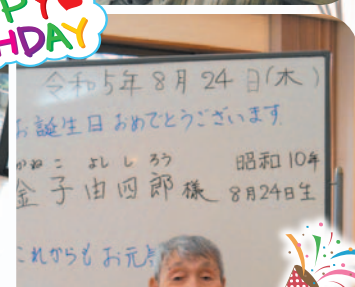 PY
HDAY
令和5年8月24日(木)
お誕生日おめでとうございます
かねこ よししろう 昭和10年
金子由四郎様 8月24日生
これからもお元気